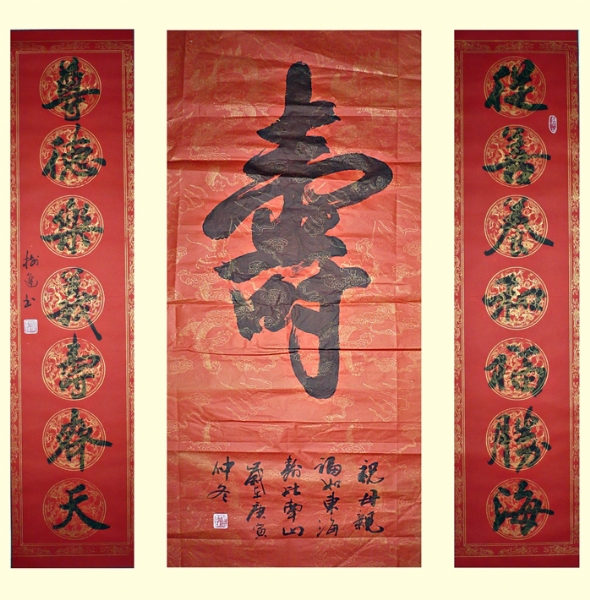 從善福勝海
壽
祝母親
福如東海
壽比南山
歲在庚寅
仲冬
尊德樂義壽齊天
書